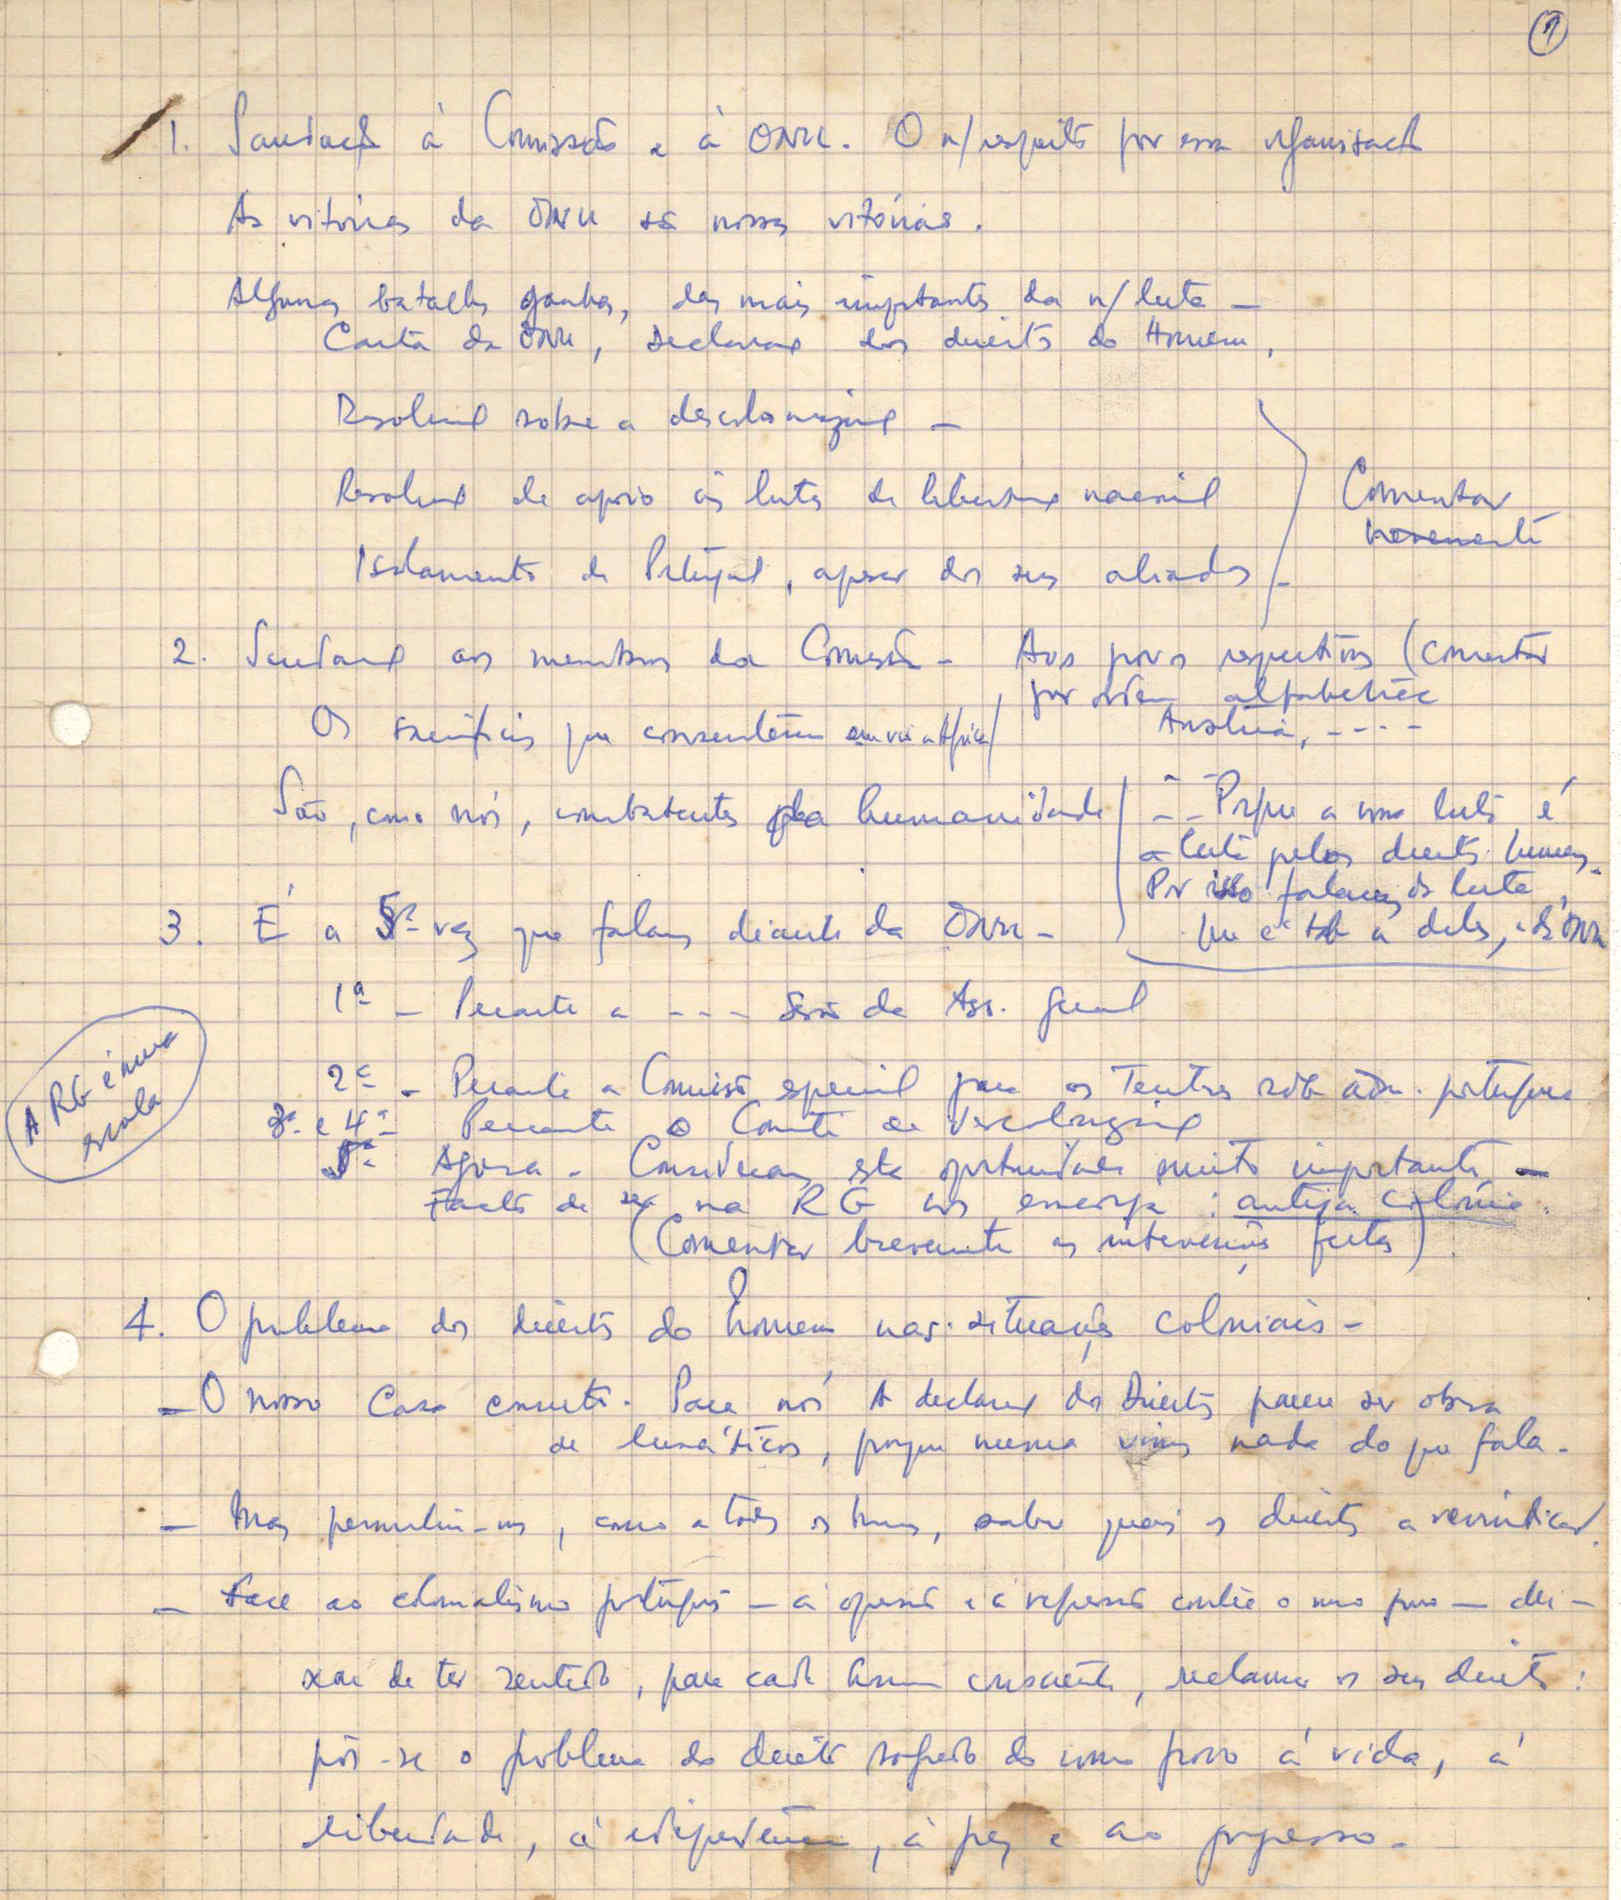 1
1. Saudação à Comissão e à ONU. O n/respeito por essa organização
As vitórias da ONU são nossas vitórias.
Algumas batalhas ganhas, das mais importantes da n/luta –
Carta da ONU, Declaração dos direitos do Homem,
Resolução sobre a descolonização –
Resolução de apoio às lutas de libertação nacional
Isolamento de Portugal, apesar dos seus aliados –
Comentar
brevemente
2. Saudação aos membros da Comissão – Aos povos respectivos (comentar
por ordem alfabética
Austria, ----
Os sacrifícios que consentem em vir a Africa
São, como nós, combatentes pela humanidade
-- Porque a nossa luta é
a luta pelos direitos humanos.
Por isso falamos da luta,
que é tb a deles, e da ONU
3. É a 5ª vez que falamos diante da ONU –
1ª – Perante a --- Sessão da Ass. Geral
2ª – Perante a Comissão especial para os Territórios sob adm. portuguesa
3ª e 4ª – Perante o Comité de Descolonização
5ª Agora – Consideramos esta oportunidade muito importante –
Facto de ser na RG nos encoraja : antiga colónia.
(Comentar brevemente as intervenções feitas).
A RG é uma
escola
4. O problema dos direitos do homem nas situações coloniais –
– O nosso caso concreto. Para nós A declaração dos Direitos parece ser obra
de lunáticos, porque nunca vimos nada do que fala.
– Mas permitiu-nos, como a todos os homens, saber quais os direitos a reivindicar.
– Face ao colonialismo português – à opressão e à repressão contra o nosso povo – dei-
xou de ter sentido, para cada homem consciente, reclamar os seus direitos :
pôs-se o problema do direito sagrado do nosso povo à vida, à
liberdade, à independência, à paz e ao progresso.